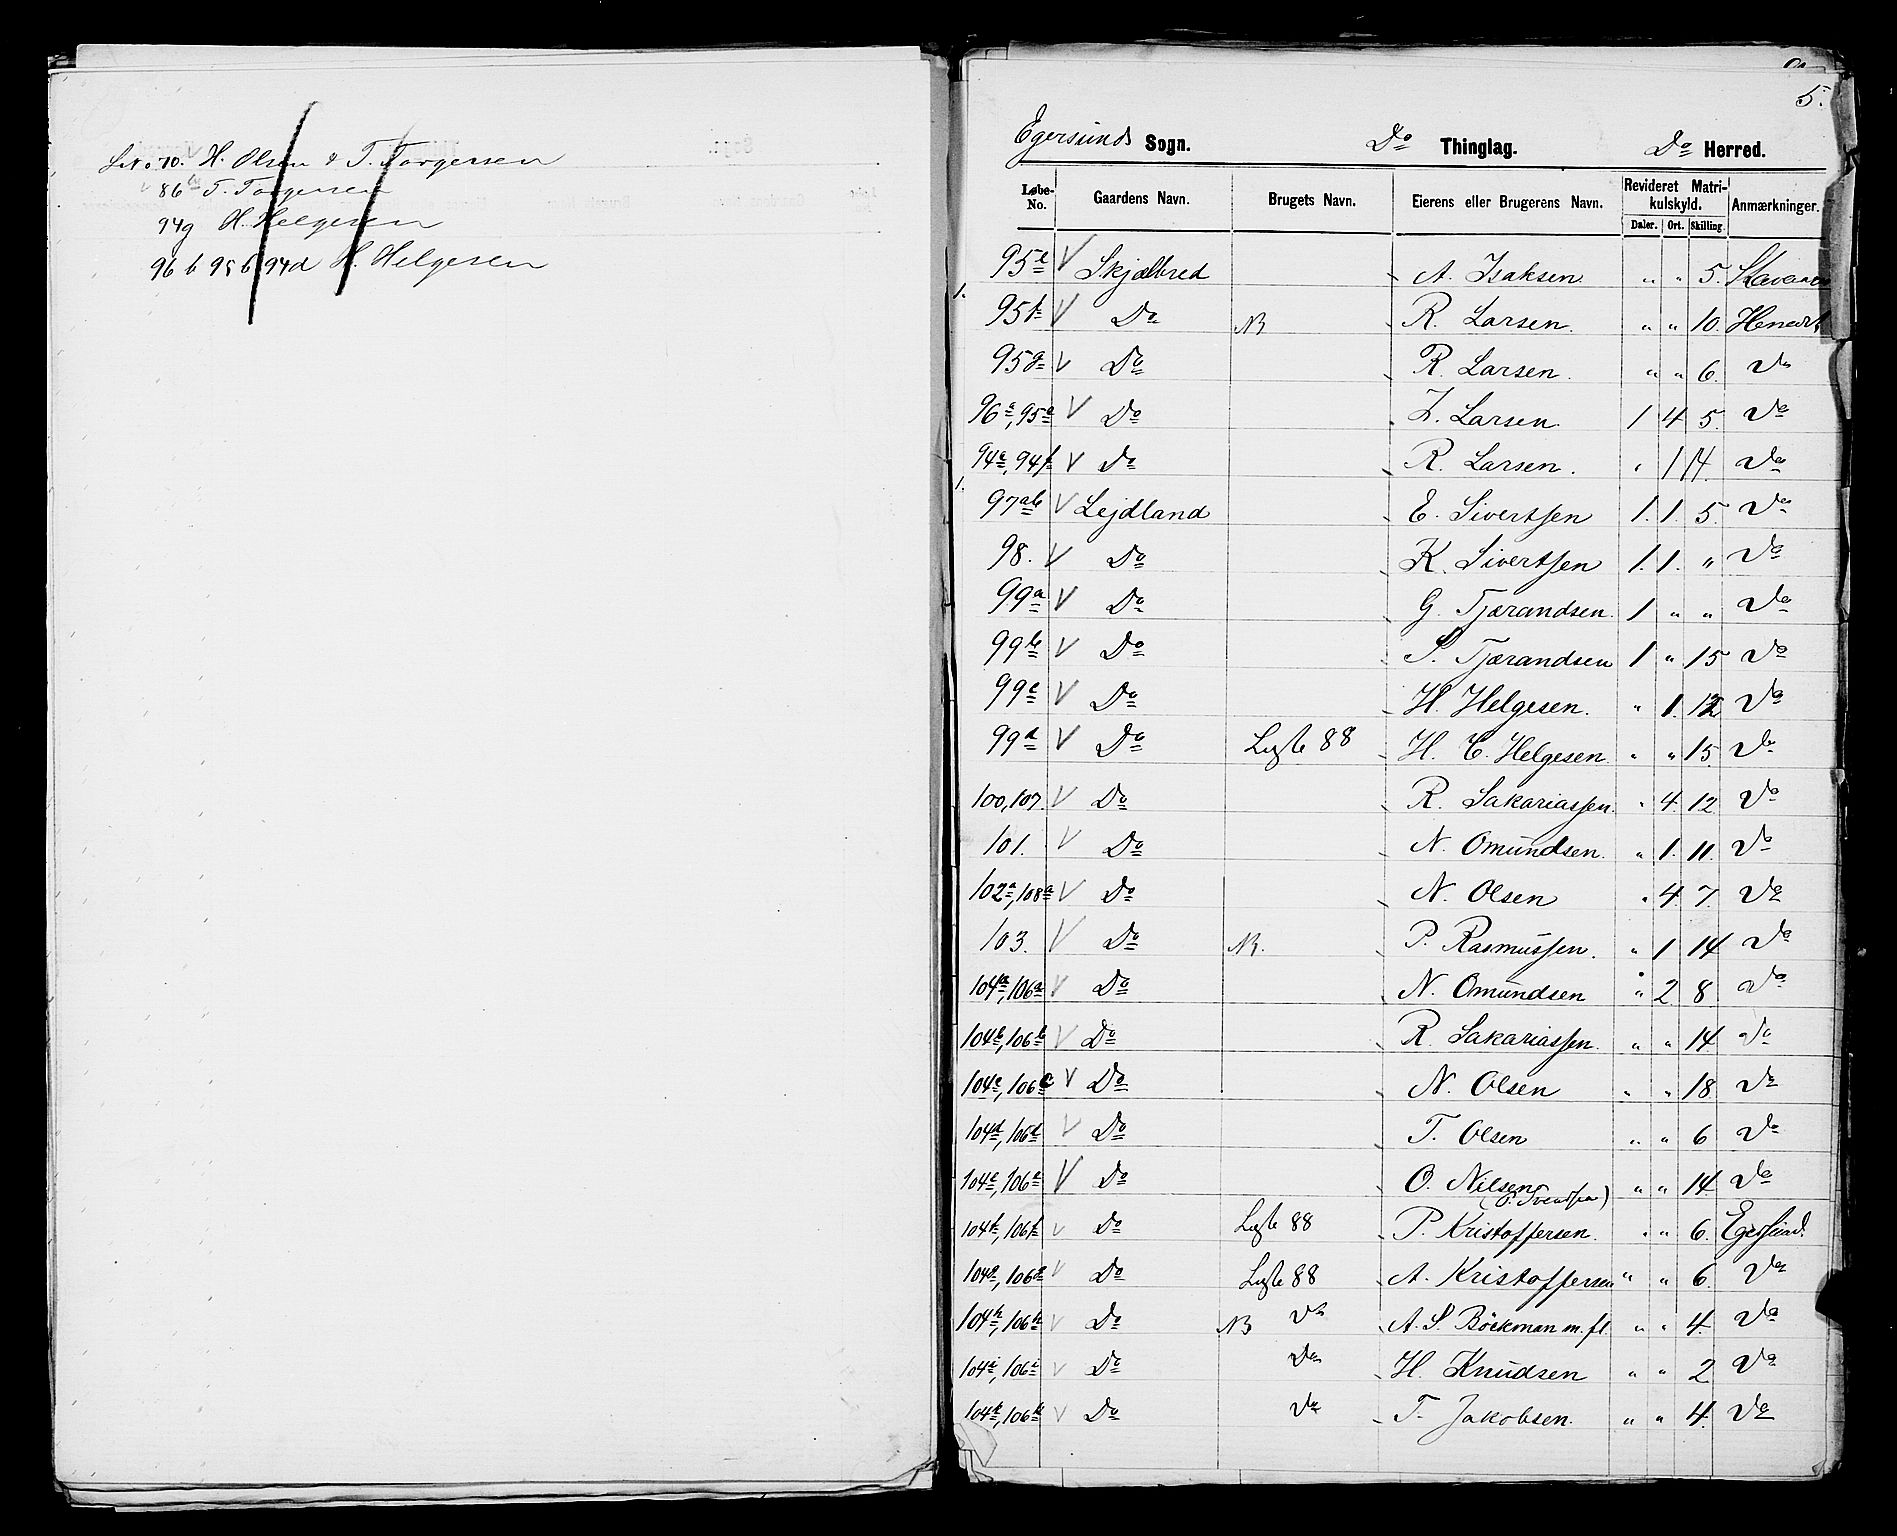 L.No 70. H. Olsen & T. Torgersen
86 b T. Torgersen
94g H. Helgesen
96 b 95 b 94d H. Helgesen
5.
Egersunds Sogn. Do Thinglag. Do Herred.
Løbe-No. Gaardens Navn. Brugets Navn. Eierens eller Brugerens Navn. Revideret Matrikulskyld. Anmærkninger.
Daler. Ort. Skilling.
95e V Skjælbred A. Isaksen " " 5.
95f V Do NB R. Larsen. " " 10.
95g V Do R. Larsen. " " 6. Do
96a, 95a V Do Z. Larsen. 1 4 5. Do
94a, 94f V Do R. Larsen. " 1 14. Do
97ab V Lejdland E. Sivertsen 1. 1. 5. Do
98. V Do K. Sivertsen 1. 1. " Do
99a V Do G. Tjærandsen. 1 " " Do
99b V Do S. Tjærandsen 1 " 15 Do
99c V Do H. Helgesen. " 1. 12 Do
99d V Do Lyste 88 H. C. Helgesen. " " 15. Do
100, 107. V Do R. Sakariassen. " 4. 12. Do
101. V Do N. Omundsen. " 1. 11. Do
102a, 108a V Do N. Olsen " 4. 7. Do
103. V Do NB. P. Rasmussen. " 1 14 Do
104a, 106a V Do N. Omundsen " 2. 8. Do
104b, 106b V Do R. Sakariassen. " " 14. Do
104c, 106c V Do N. Olsen " " 18 Do
104d, 106d V Do T. Olsen " " 6 Do
104e, 106e V Do O. Nilsen " " 14 Do
104f, 106f V Do Lyste 88 P. Kristoffersen. " " 6. Egersund.
104g, 106g V Do Lyste 88 A. Kristoffersen " " 6. Do
104h, 106h V Do NB Do A. S. Böckman m. fl. " " 4. Do
104i, 106i V Do Do H. Knudsen " " 2 Do
104k, 106k V Do Do T. Jakobsen. " " 4. Do